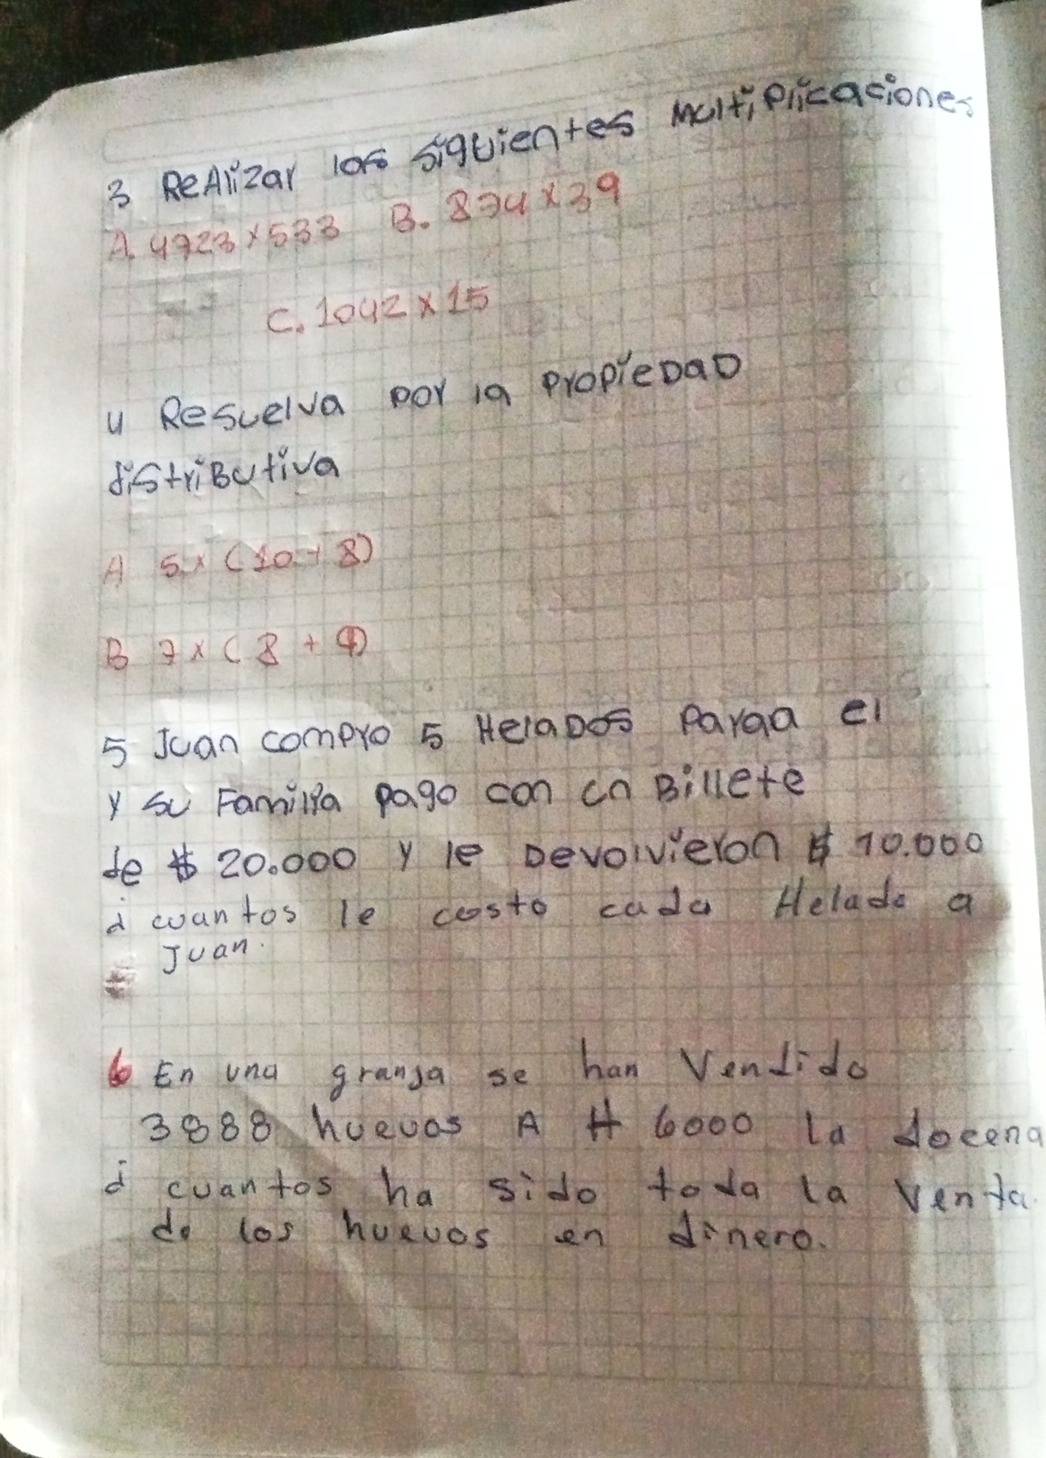 3 ReAlizar los siguientes Multiplicaciones
A. 4723 x 533 B. 874 x 39
C. 1042 x 15
4 Resuelva por la propieDaD
distriButiva
A 5 x (10 + 8)
B 7 x (8 +
5 Juan compro 5 HelaDos Parga el
y su Familia pago con un Billete
de $ 20.000 y le Devolvieron $ 10.000
¿ cuantos le costo cada Helado a
Juan.
6 En una granja se han Vendido
3888 huevos A $ 6000 la docena
¿ cuantos ha sido toda la Venta
de los huevos en dinero.